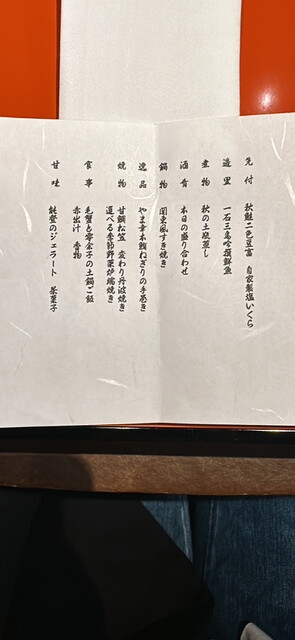 先付　秋鮭二色豆富　自家製塩いくら
造里　一石三鳥吟撰鮮魚
産物　秋の土瓶蒸し
酒肴　本日の盛り合わせ
鍋物　関東風すき焼き
逸品　やま幸本鮪ねぎりの手巻き
焼物　甘鯛松笠　変わり丹波焼き
選べる季節野菜炉端焼き
食事　毛蟹と零余子の土鍋ご飯
赤出汁　香物
甘味　能登のジェラート　茶菓子